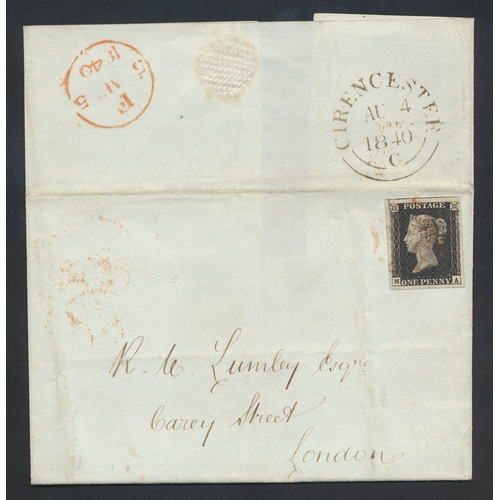 CIRENCESTER
AU 4
1840
C
F
5
AU
1840
POSTAGE
M A
ONE PENNY
R. W. Lumley Esqre
Carey Street
London